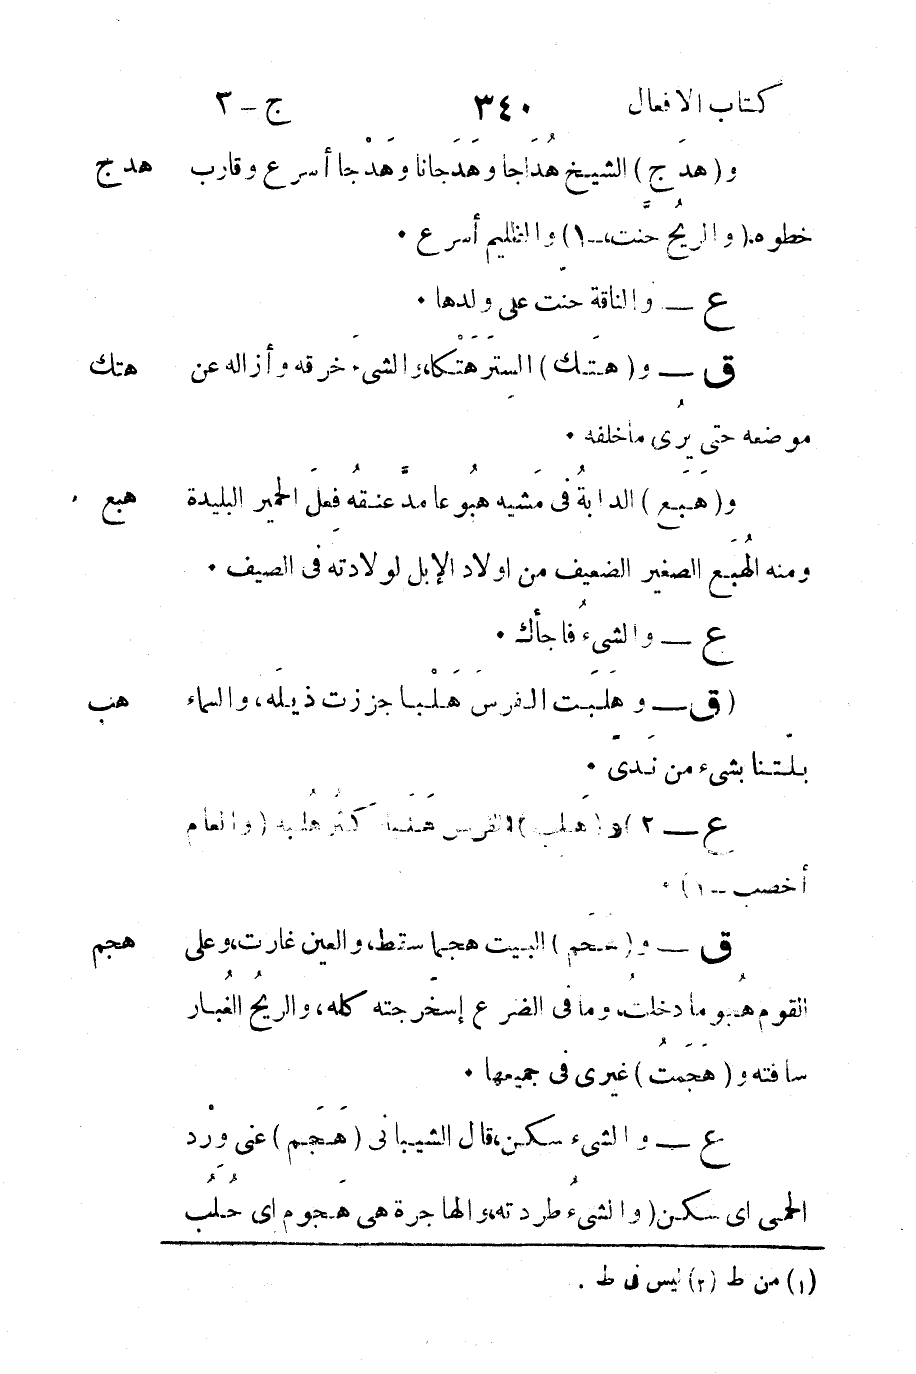 كتاب الافعال ٣٤٠ ج - ٣
و ( هدَج ) الشيخ هُدَاجا وهَدَجانا وهَدْجا أسرع وقارب هدج
خطوه. ( والريحُ حنَّت، – ١ ) والظليم أسرع ٠
ع — والناقة حنّت على ولدها ٠
ق — و ( هَتَك ) السِترَ هَتْكا، والشىء خرقه وأزاله عن هتك
موضعه حتى يُرى ماخلفه ٠
و ( هَبَع ) الدابةُ فى مَشيه هبُوعا مدَّ عنقهُ فعلَ الحمير البليدة هبع
ومنه الهُبَع الصغير الضعيف من اولاد الإبل لولادته فى الصيف ٠
ع — والشىءُ فاجأك ٠
( ق — و هَلَبَت الفرسَ هَلْبا جززت ذيلَه، والسماء هب
بلّتنا بشىء من نَدىً ٠
ع — ٢ ) و ( هَلِب ) الفرس هَلَبا كثُر هُلبه ( والعام
أخصب – ١ ) ٠
ق — و ( هَجَم ) البيت هجما سقط، والعين غارت، وعلى هجم
القوم هُجُوما دخلتُ، وما فى الضرع إستخرجته كله، والريحُ الغُبار
سافته و ( هَجَمتُ ) غيرى فى جميعها ٠
ع — والشىء سكن، قال الشيبانى ( هَجَم ) عنى وِرْد
الحمى اى سكن ( والشىءُ طردته، والهاجرة هى هَجوم اى حُلُب
(١) من ط (٢) ليس فى ط .